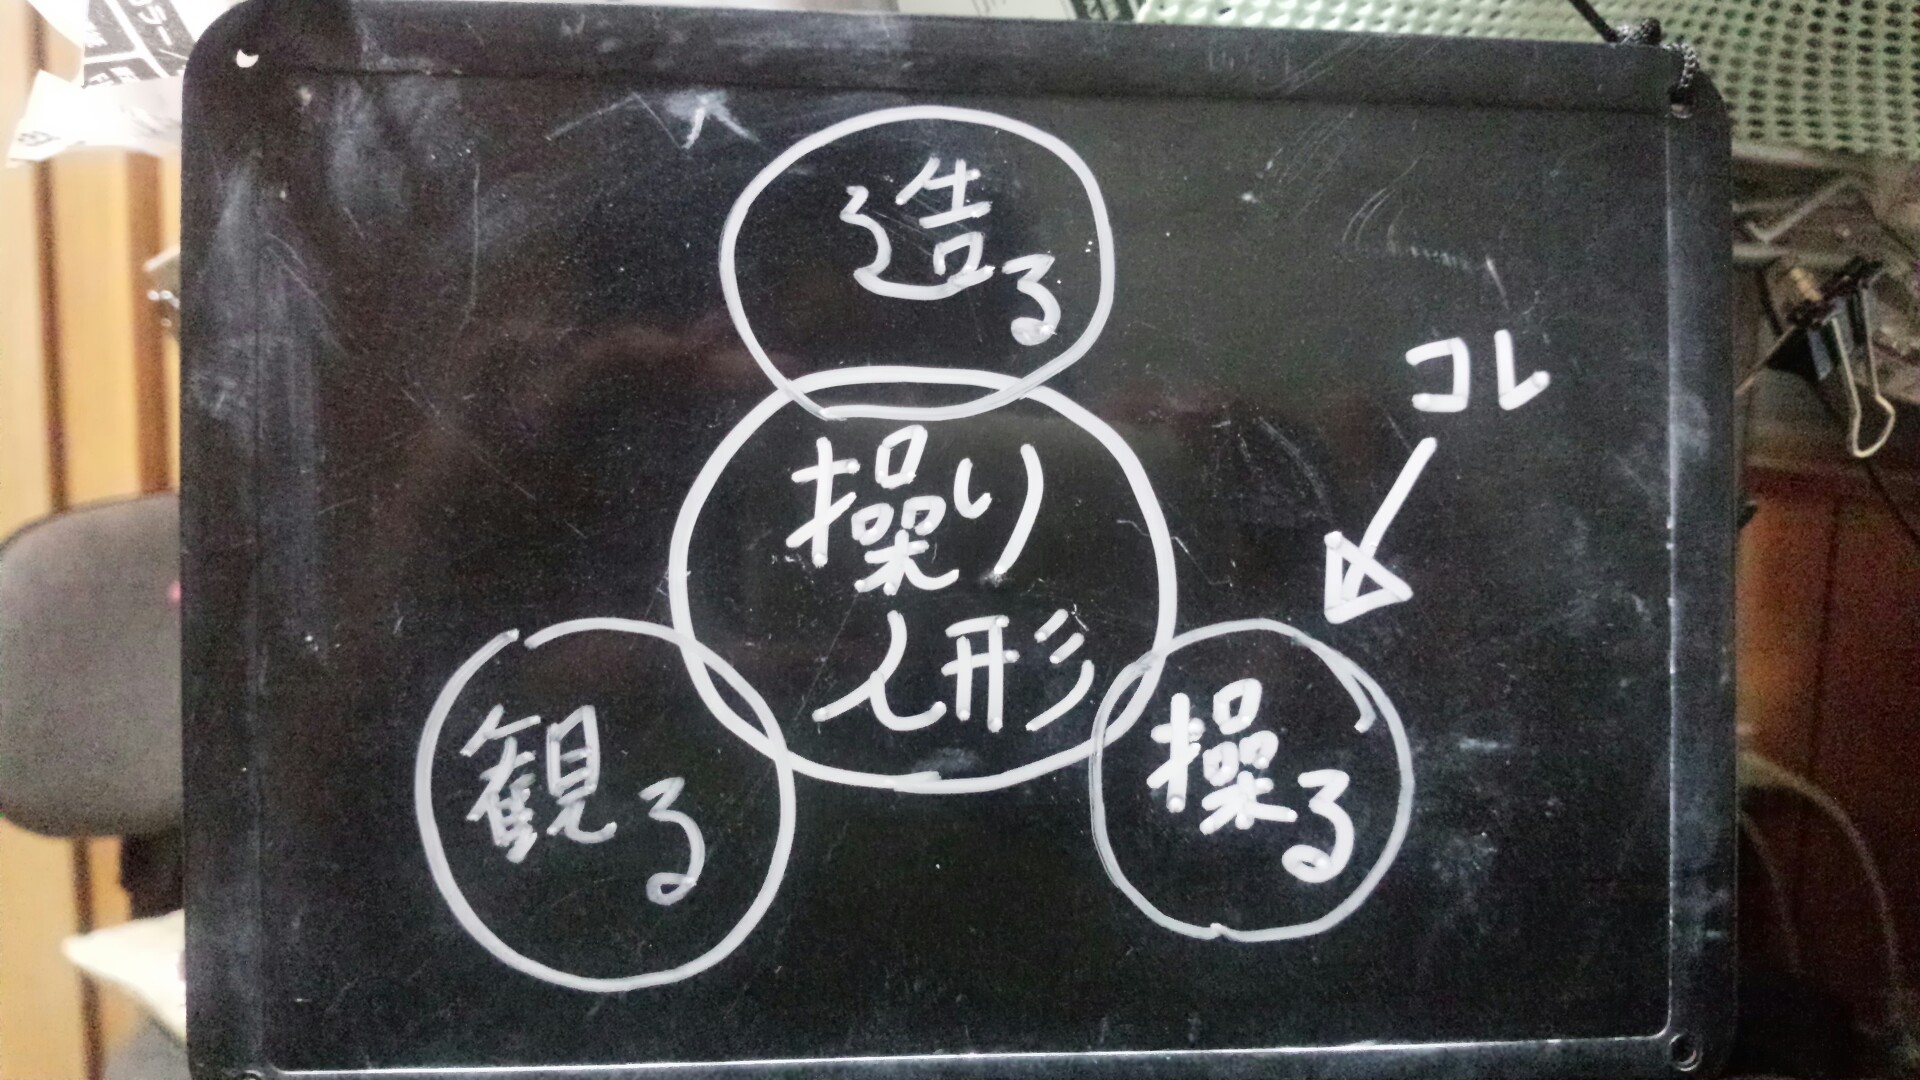 造る
コレ
操り
人形
観る
操る